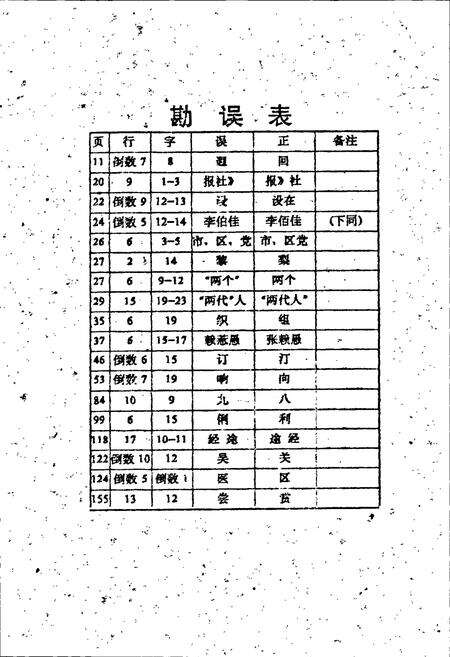 勘误表
页 行 字 误 正 备注
11 倒数7 8 迥 回
20 9 1-3 报社》 报》社
22 倒数9 12-13 设在
24 倒数5 12-14 李伯佳 李佰佳 (下同)
26 6 3-5 市、区、党 市、区党
27 2 14 黎 梨
27 6 9-12 “两个” 两个
29 15 19-23 “两代”人 “两代人”
35 6 19 织 组
37 6 15-17 愚 张 愚
46 倒数6 15 订 汀
53 倒数7 19 响 向
84 10 9 九 八
99 6 15 俐 利
118 17 10-11 经途 途经
122 倒数10 12 吴 关
124 倒数5 倒数1 医 区
155 13 12 尝 赏